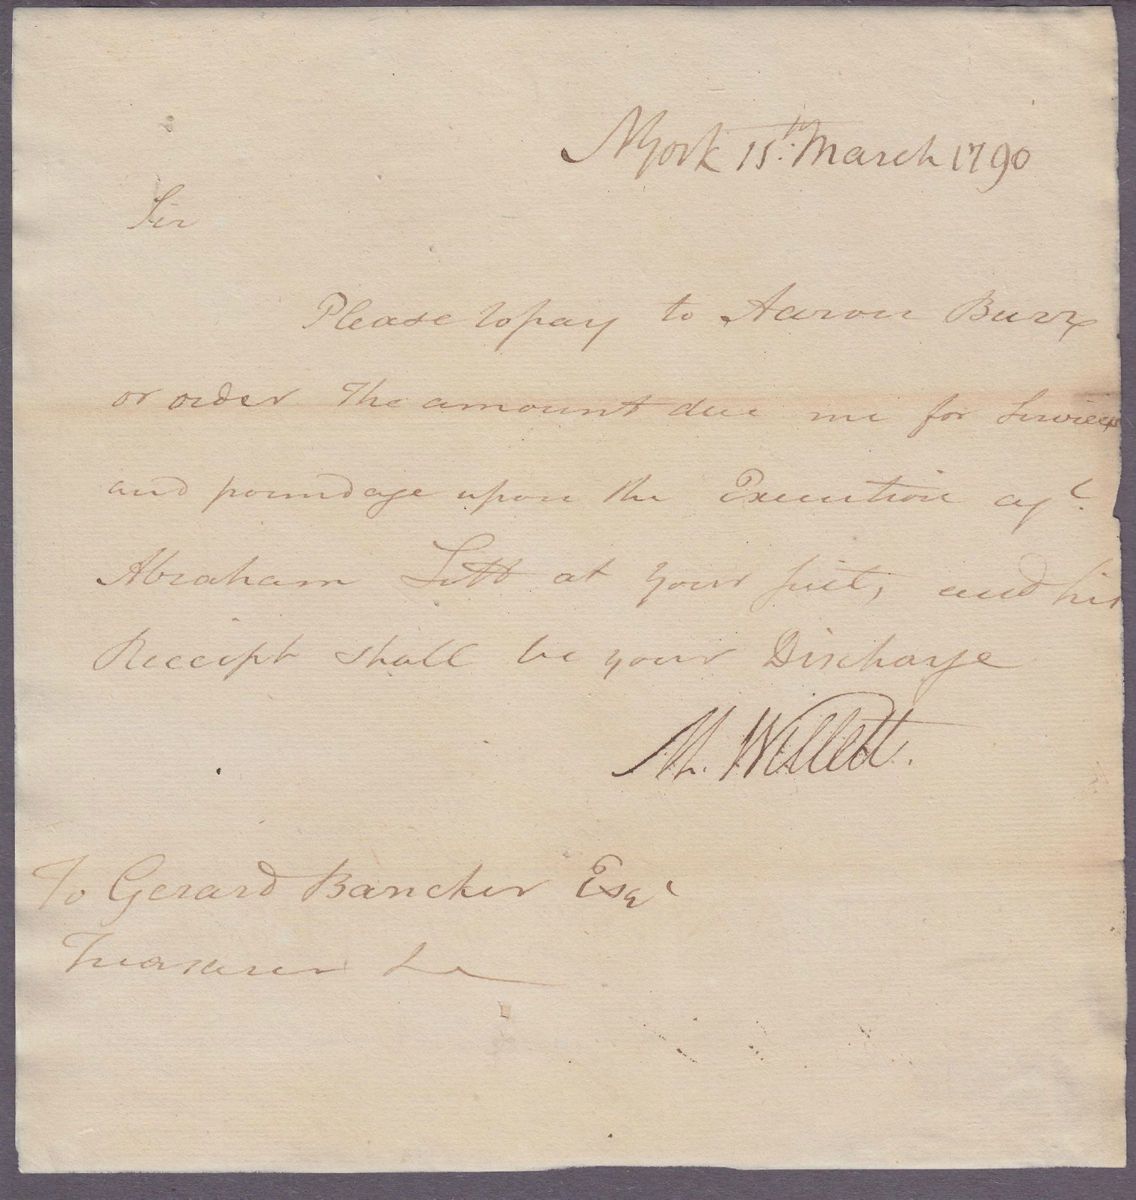 NYork 15th March 1790
Sir
Please to pay to Aaron Burr
or order the amount due me for Services
and poundage upon the Execution agt
Abraham Lott at your suit, and his
Receipt shall be your Discharge
M. Willett.
To Gerard Bancker Esqr
Treasurer &c